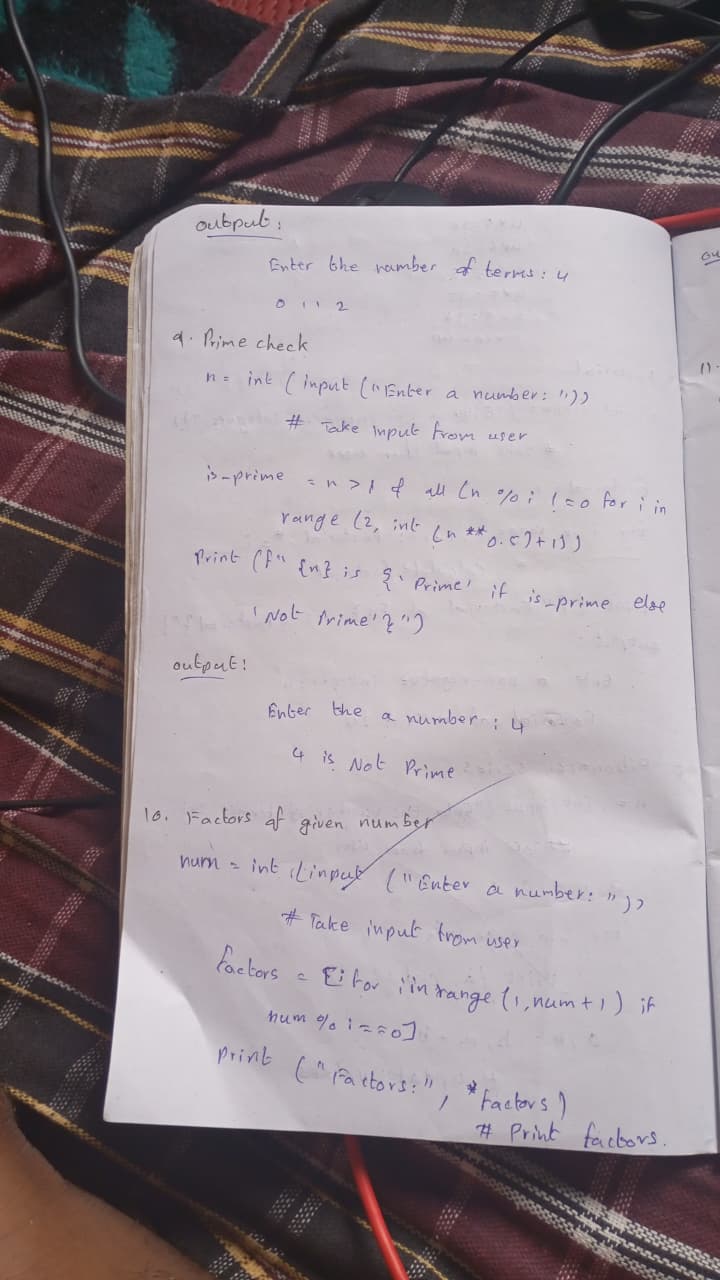 output:
Enter the number of terms: 4
0 1 1 2
9. Prime check
n = int (input ("Enter a number: "))
# Take input from user
is-prime = n > 1 & all (n % i != 0 for i in
range (2, int (n ** 0.5) + 1))
Print (f" {n} is {' Prime' if is_prime else
'Not Prime'}")
output:
Enter the a number: 4
4 is Not Prime
10. Factors of given number
num = int (input ("Enter a number: "))
# Take input from user
factors = [i for i in range (1, num + 1) if
num % i == 0]
Print ("Factors:", *factors)
# Print factors.
11.